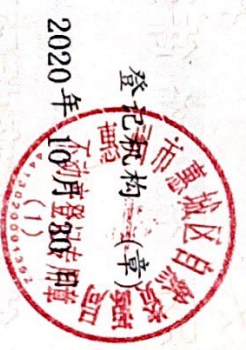 登记机构（章）
2020年10月30日
惠州市惠城区自然资源局
不动产登记专用章
（1）